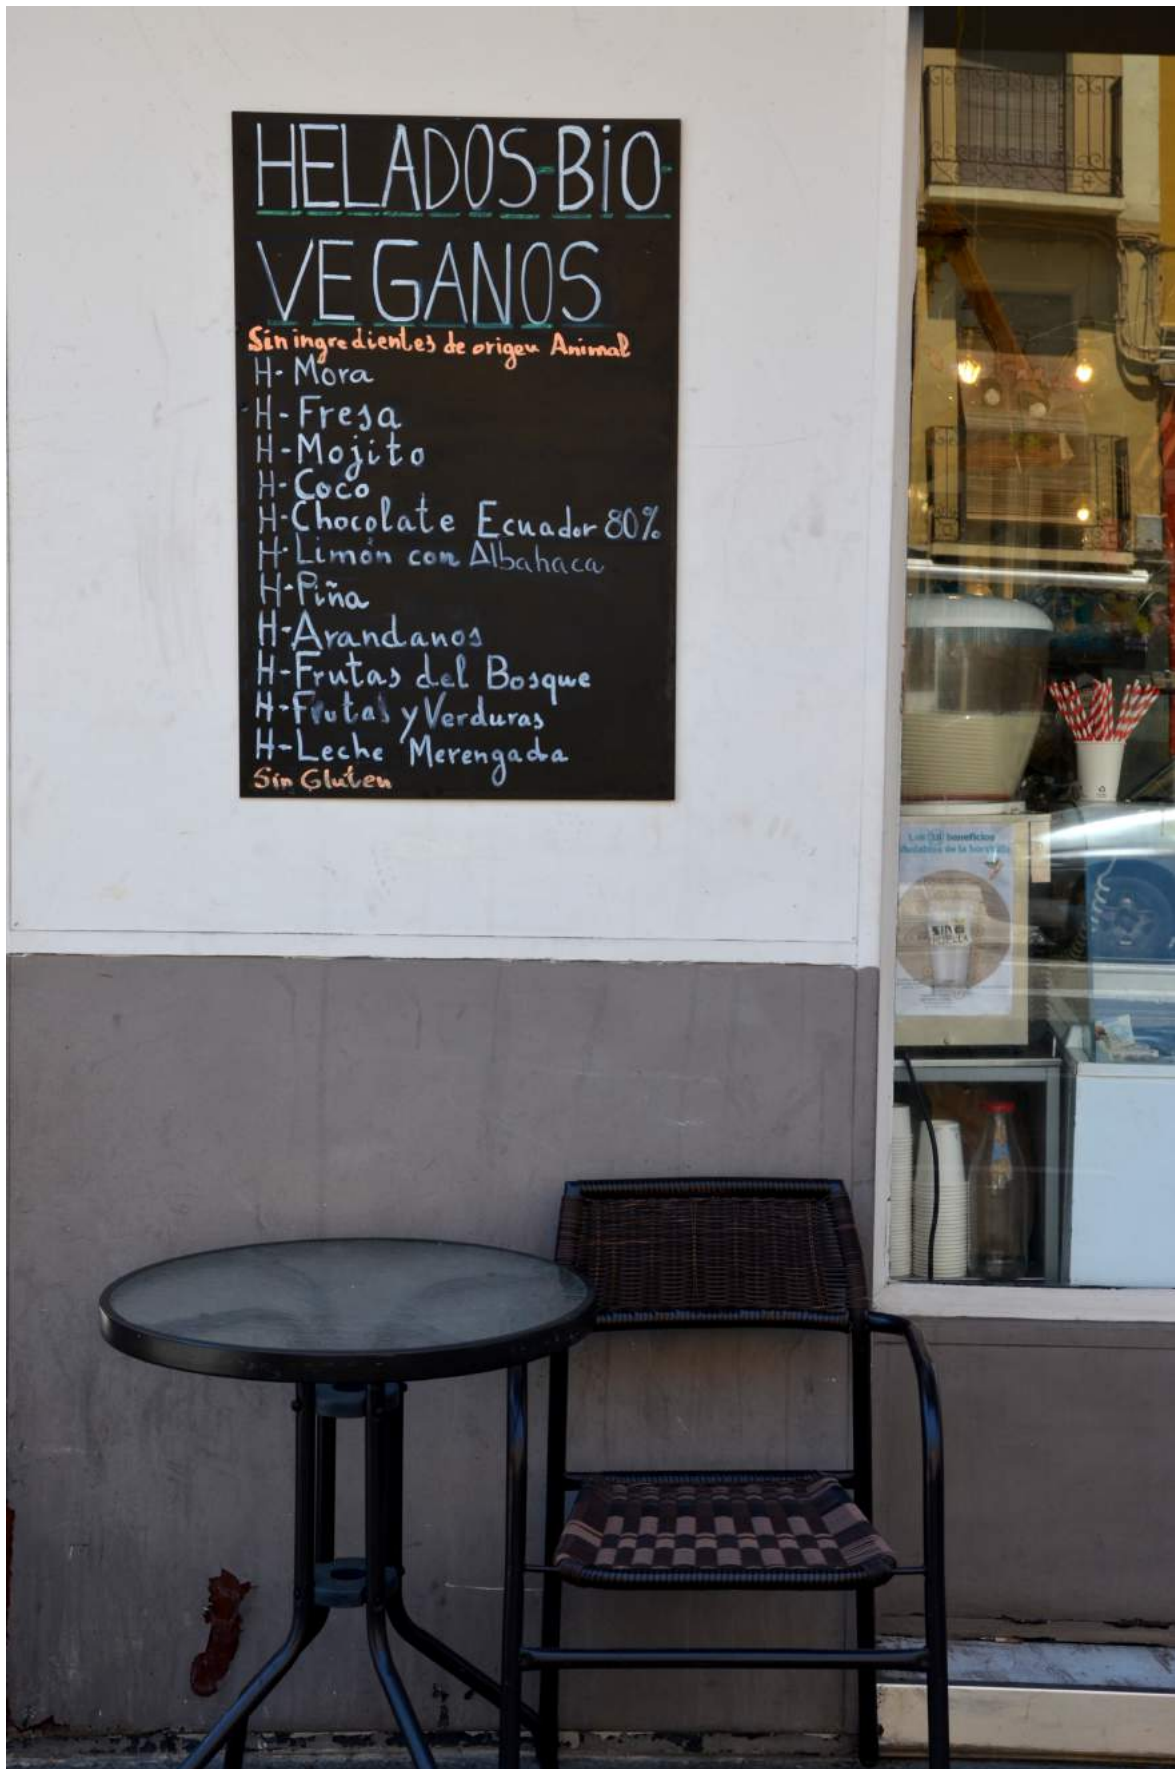 HELADOS-BiO-
VEGANOS
Sin ingredientes de origen Animal
H-Mora
H-Fresa
H-Mojito
H-Coco
H-Chocolate Ecuador 80%
H-Limón con Albahaca
H-Piña
H-Arandanos
H-Frutas del Bosque
H-Frutas y Verduras
H-Leche Merengada
Sin Gluten
beneficios
de la